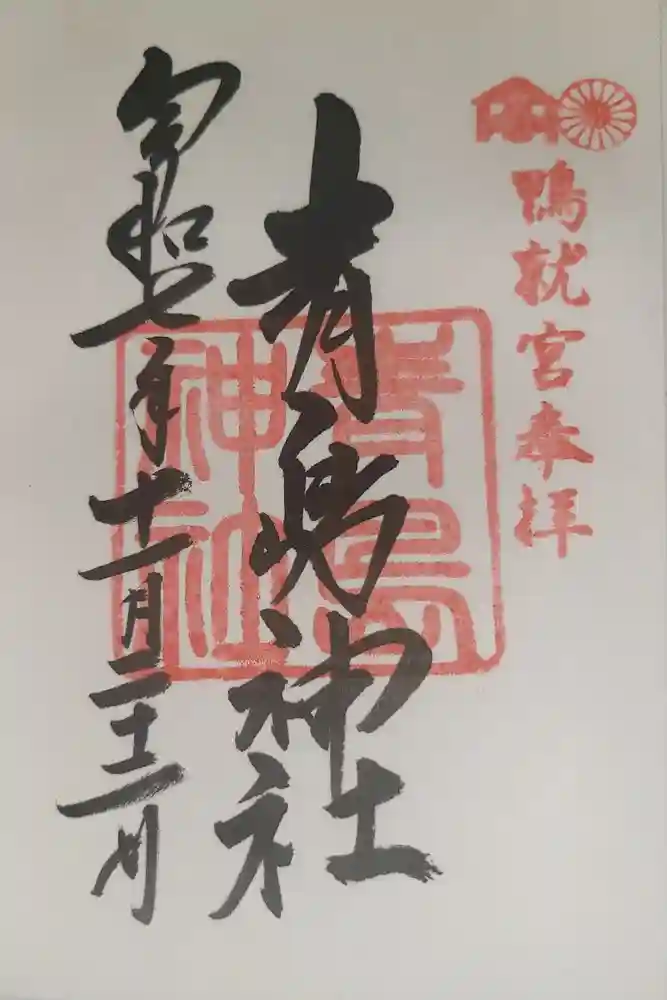 鴨就宮奉拝
青嶋神社
青島
神社
令和七年十一月二十二日